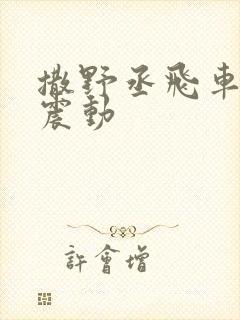 撒野丞飛車
震動
許會增